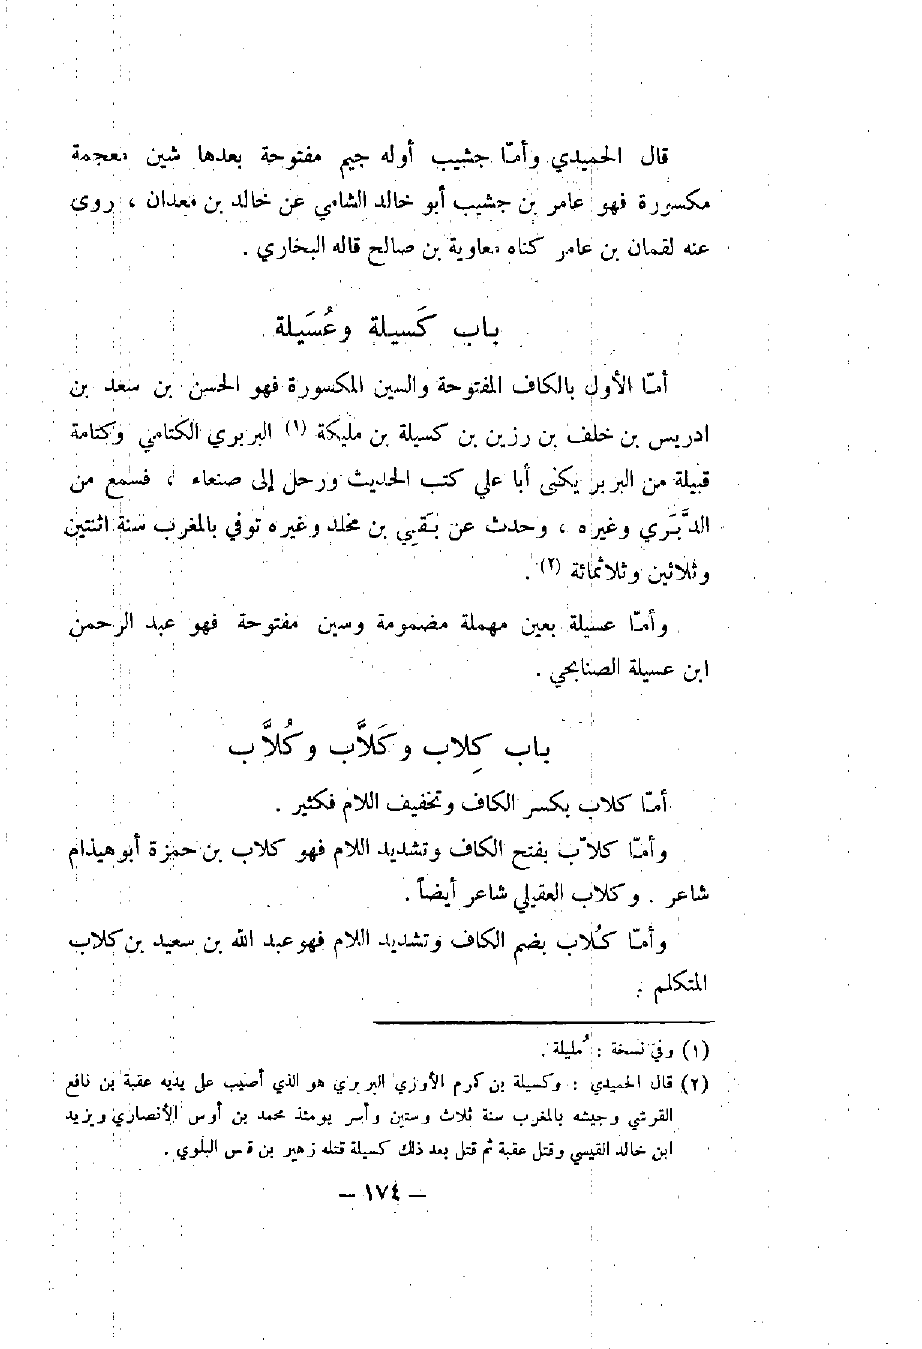 قال الحميدي وأمّا جشيب أوله جيم مفتوحة بعدها شين معجمة
مكسورة فهو عامر بن جشيب أبو خالد الشامي عن خالد بن معدان ، روى
عنه لقمان بن عامر كناه معاوية بن صالح قاله البخاري .
باب كَسيلة وعُسَيلة
أمّا الأول بالكاف المفتوحة والسين المكسورة فهو الحسن بن سعد بن
ادريس بن خلف بن رزين بن كسيلة بن مليكة (١) البربري الكتامي وكتامة
قبيلة من البربر يكنى أبا علي كتب الحديث ورحل إلى صنعاء ، فسمع من
الدَّبَري وغيره ، وحدث عن بَقيِي بن مخلد وغيره توفي بالمغرب سنة اثنتين
وثلاثين وثلاثمائة (٢) .
وأمّا عسيلة بعين مهملة مضمومة وسين مفتوحة فهو عبد الرحمن
ابن عسيلة الصنابحي .
باب كِلاب وكَلاَّب وكُلاَّب
أمّا كلاب بكسر الكاف وتخفيف اللام فكثير .
وأمّا كلاّب بفتح الكاف وتشديد اللام فهو كلاب بن حمزة أبو هيذام
شاعر . وكلاب العقيلي شاعر أيضاً .
وأمّا كُلاب بضم الكاف وتشديد اللام فهو عبد الله بن سعيد بن كلاب
المتكلم .
(١) وفي نسخة : مُليلة .
(٢) قال الحميدي : وكسيلة بن كرم الأوزي البربري هو الذي أصيب على يديه عقبة بن نافع
القرشي وجيشه بالمغرب سنة ثلاث وستين وأسر يومئذ محمد بن أوس الأنصاري ويزيد
ابن خالد القيسي وقتل عقبة ثم قتل بعد ذلك كسيلة قتله زهير بن البلوي .
— ١٧٤ —